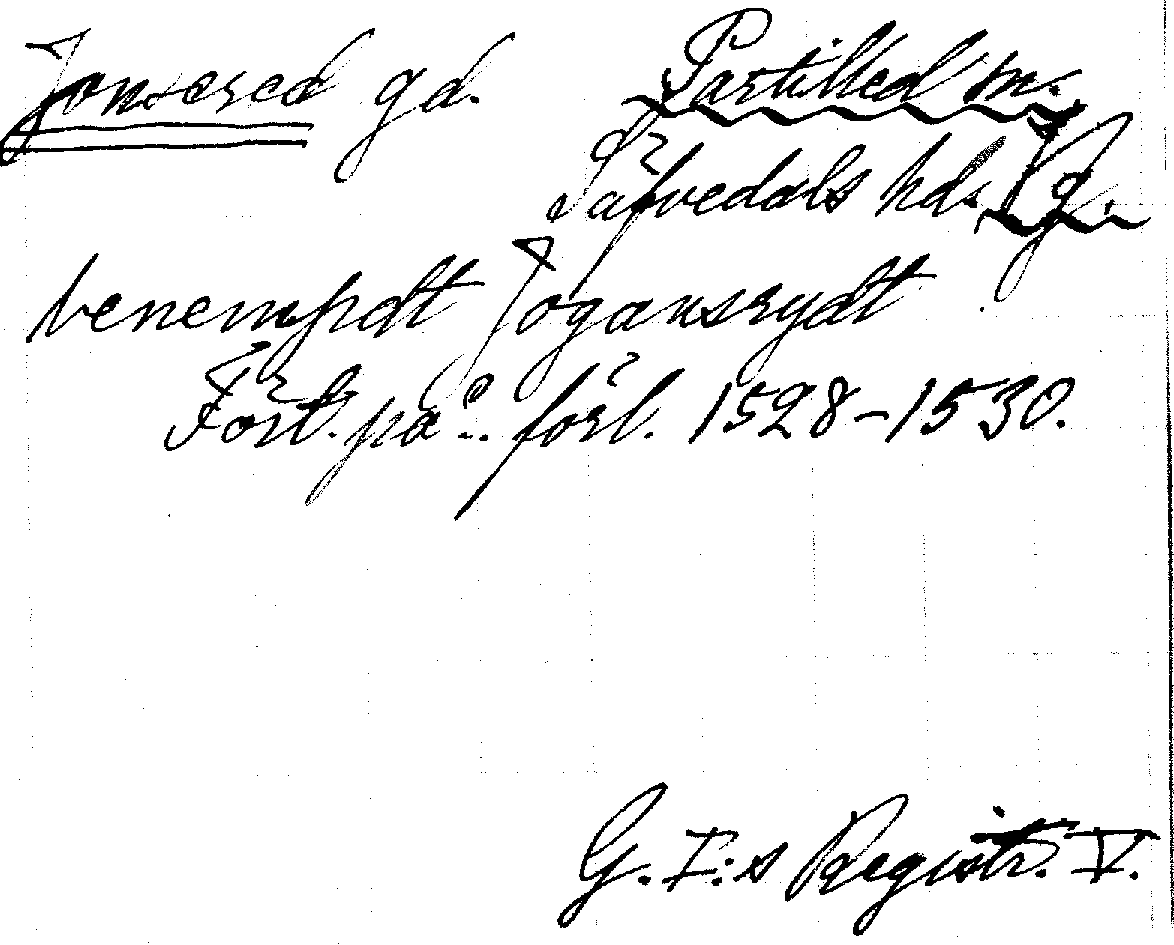 Jonsered gd. Partilled sn.
Säfvedals hd. Vg.
benempdt Jogansrydt
Fört. på .. förl. 1528-1530.
G. I:s Registr. V.